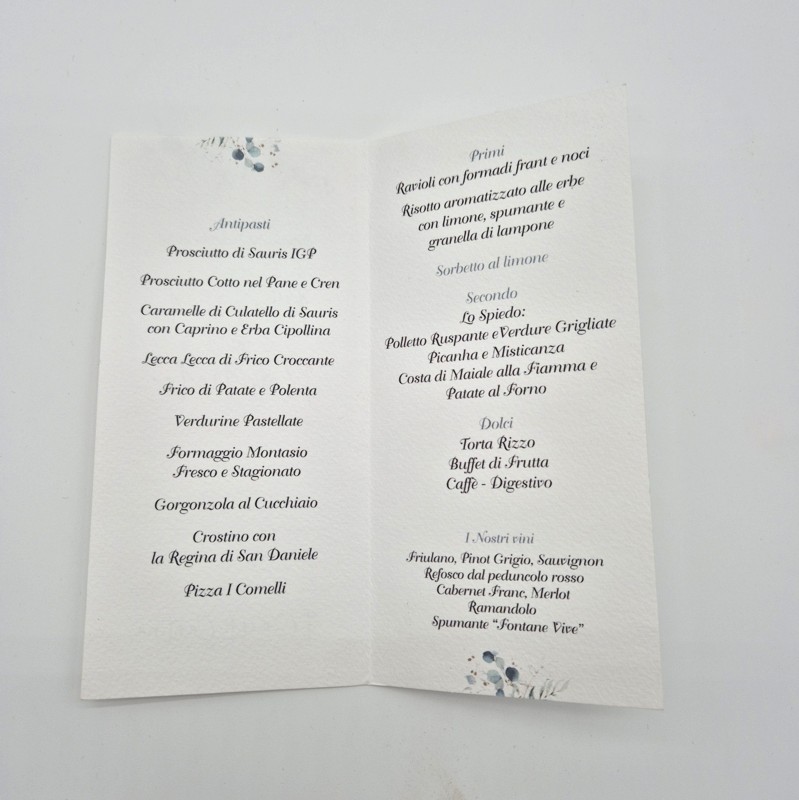 Antipasti
Prosciutto di Sauris IGP
Prosciutto Cotto nel Pane e Cren
Caramelle di Culatello di Sauris
con Caprino e Erba Cipollina
Lecca Lecca di Frico Croccante
Frico di Patate e Polenta
Verdurine Pastellate
Formaggio Montasio
Fresco e Stagionato
Gorgonzola al Cucchiaio
Crostino con
la Regina di San Daniele
Pizza I Comelli
Primi
Ravioli con formadi frant e noci
Risotto aromatizzato alle erbe
con limone, spumante e
granella di lampone
Sorbetto al limone
Secondo
Lo Spiedo:
Polletto Ruspante eVerdure Grigliate
Picanha e Misticanza
Costa di Maiale alla Fiamma e
Patate al Forno
Dolci
Torta Rizzo
Buffet di Frutta
Caffè - Digestivo
I Nostri vini
Friulano, Pinot Grigio, Sauvignon
Refosco dal peduncolo rosso
Cabernet Franc, Merlot
Ramandolo
Spumante “Fontane Vive”